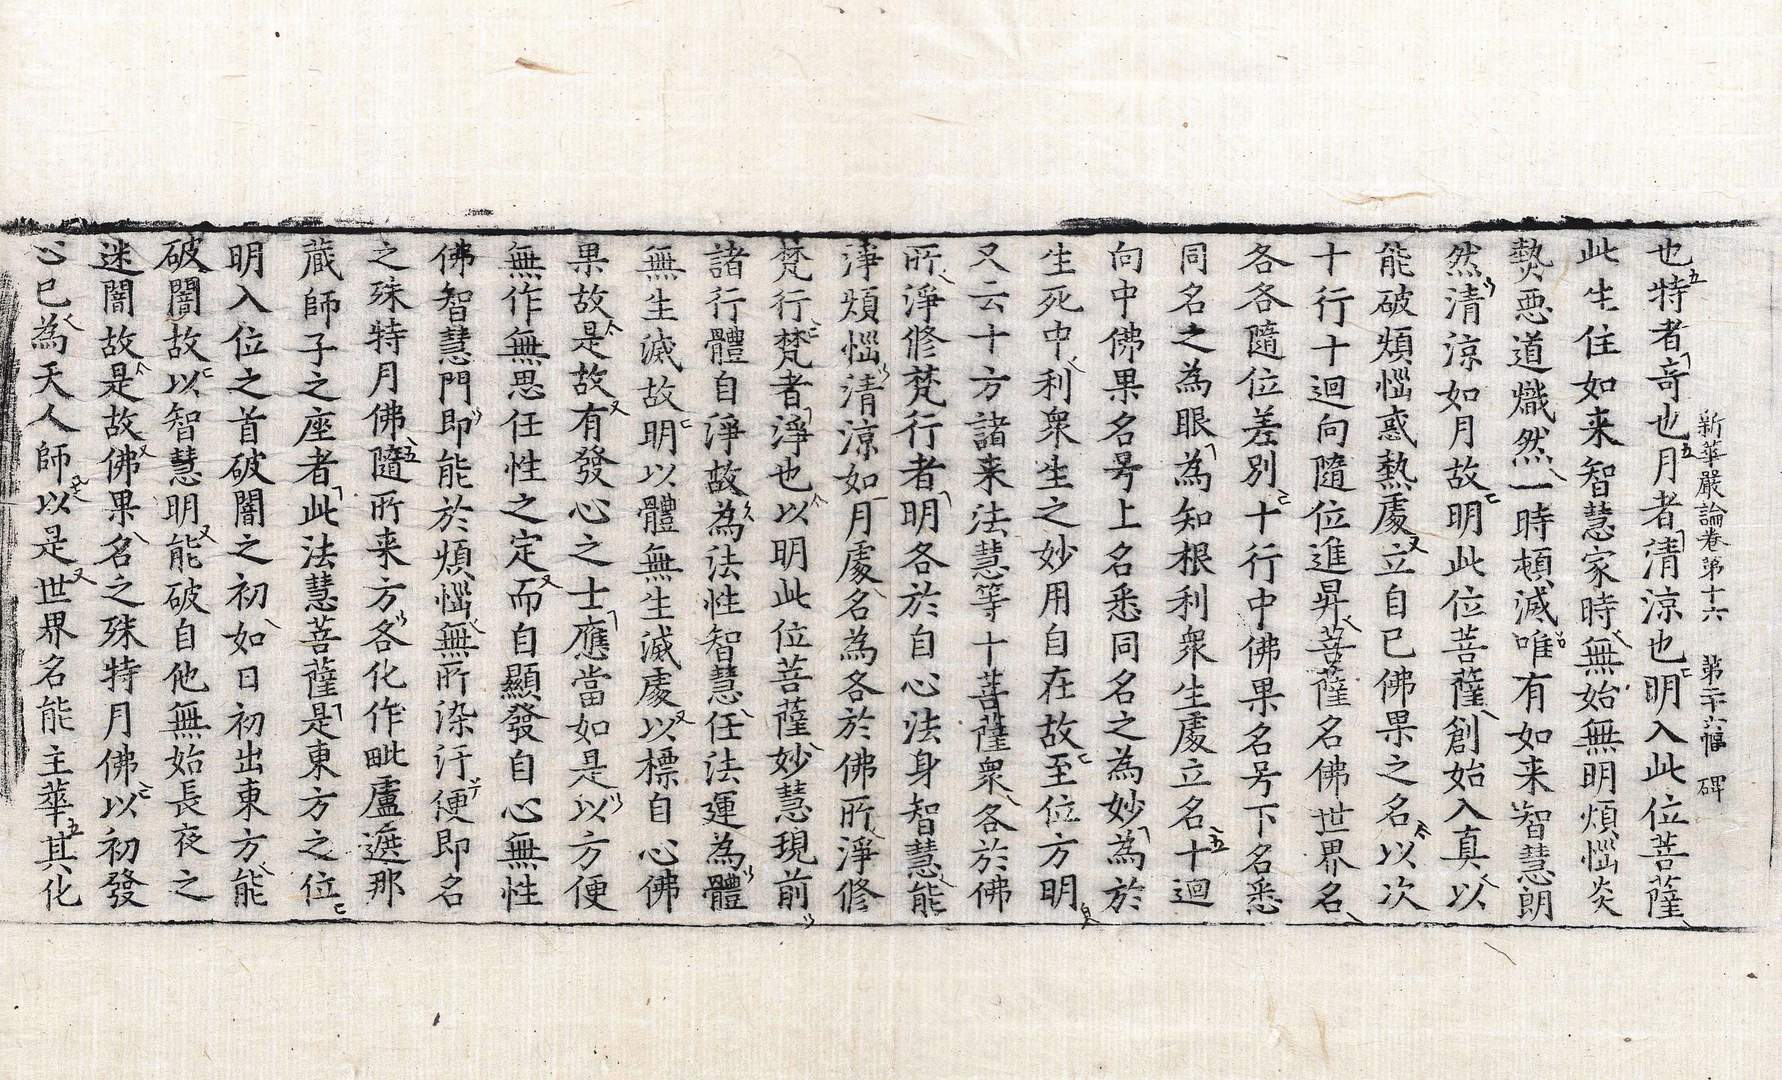 新華嚴論卷第十六　第二十六幅　碑
也特者奇也月者清涼也明入此位菩薩
此生住如来智慧家時無始無明煩惱炎
熱惡道熾然一時頓滅唯有如来智慧朗
然清涼如月故明此位菩薩創始入真以
能破煩惱惑熱處立自已佛果之名以次
十行十迴向隨位進昇菩薩名佛世界名
各各隨位差別十行中佛果名号下名悉
同名之為眼為知根利衆生處立名十迴
向中佛果名号上名悉同名之為妙為於
生死中利衆生之妙用自在故至位方明
又云十方諸来法慧等十菩薩衆各於佛
所淨修梵行者明各於自心法身智慧能
淨煩惱清涼如月處名為各於佛所淨修
梵行梵者淨也以明此位菩薩妙慧現前
諸行體自淨故為法性智慧任法運為體
無生滅故明以體無生滅處以標自心佛
果故是故有發心之士應當如是以方便
無作無思任性之定而自顯發自心無性
佛智慧門即能於煩惱無所染汙便即名
之殊特月佛隨所来方各化作毗盧遮那
藏師子之座者此法慧菩薩是東方之位
明入位之首破闇之初如日初出東方能
破闇故以智慧明能破自他無始長夜之
迷闇故是故佛果名之殊特月佛以初發
心已為天人師以是世界名能主華其化